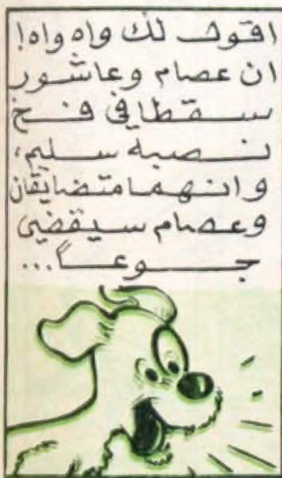 اقول لك واه واه!
ان عصام وعاشور
سقطا في فخ
نصبه سليم،
وانهما متضايقان
وعصام سيقضي
جوعاً...